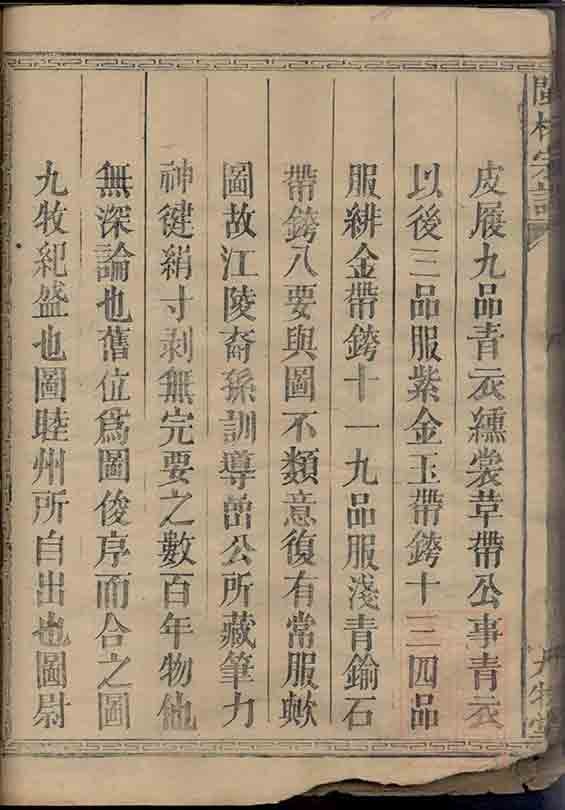 皮履九品青衣纁裳革帶公事青衣
以後三品服紫金玉帶銙十三四品
服緋金帶銙十一九品服淺青鍮石
帶銙八要與圖不類意復有常服歟
圖故江陵裔孫訓導曾公所藏筆力
神健絹寸剥無完要之數百年物他
無深論也舊位爲圖俊序而合之圖
九牧紀盛也圖睦州所自出也圖尉
林宗譜
九牧堂